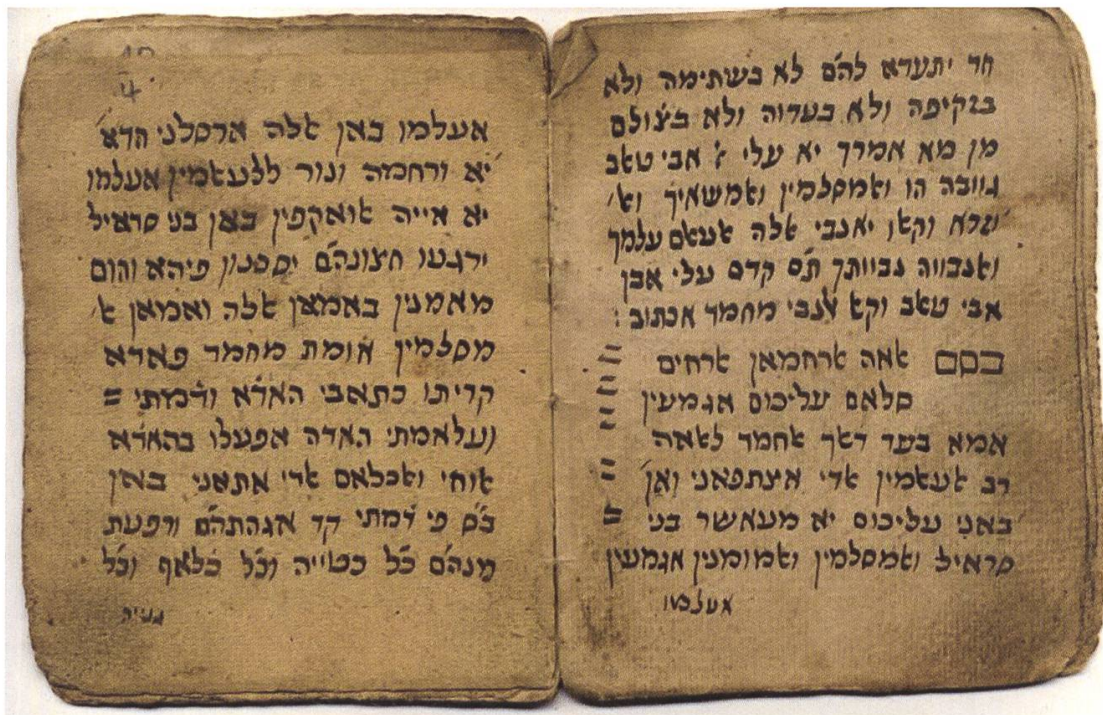 חד יתעדא להם לא בשתימה ולא
בנקיפה ולא בעדוה ולא בצולם
מן מא אמרך יא עלי א׳ אבי טאב
גוובה הו ואמסלמין ואמשאיך וא׳
וקאו יאנבי אלה אעאם עלמך
ואנבווה נבוותך תם קדם עלי אבן
אבי טאב וקא אנבי מחמד אכתוב :
בסם אאה ארחמאן ארחים
סלאם עליכום אגמעין
אמא בעד דאך אחמד לאאה
רב אעאמין אדי איצתפאני ואן
באני עליכום יא מעאשר בני
סראיל ואמסלמין ואמומנין אגמעין
אעלמו
אעלמו באן אלה ארסלני הדא
יא ורחמה ונור ללעאמין אעלמו
יא אייה אואקפין באן בני סראיל
ירגעו חצונהם יסכנון פיהא והום
מאמנין באמאן אלה ואמאן א׳
מסלמין אומת מחמד פאדא
קריתו כתאבי האדא ודמתי =
ועלאמתי האדה אפעלו בהאדא
אוחי ואכלאם אדי אתאני באין
בס פי דמתי קד אגהתהם ורפעת
מנהם כל כטייה וכל כלאף וכל